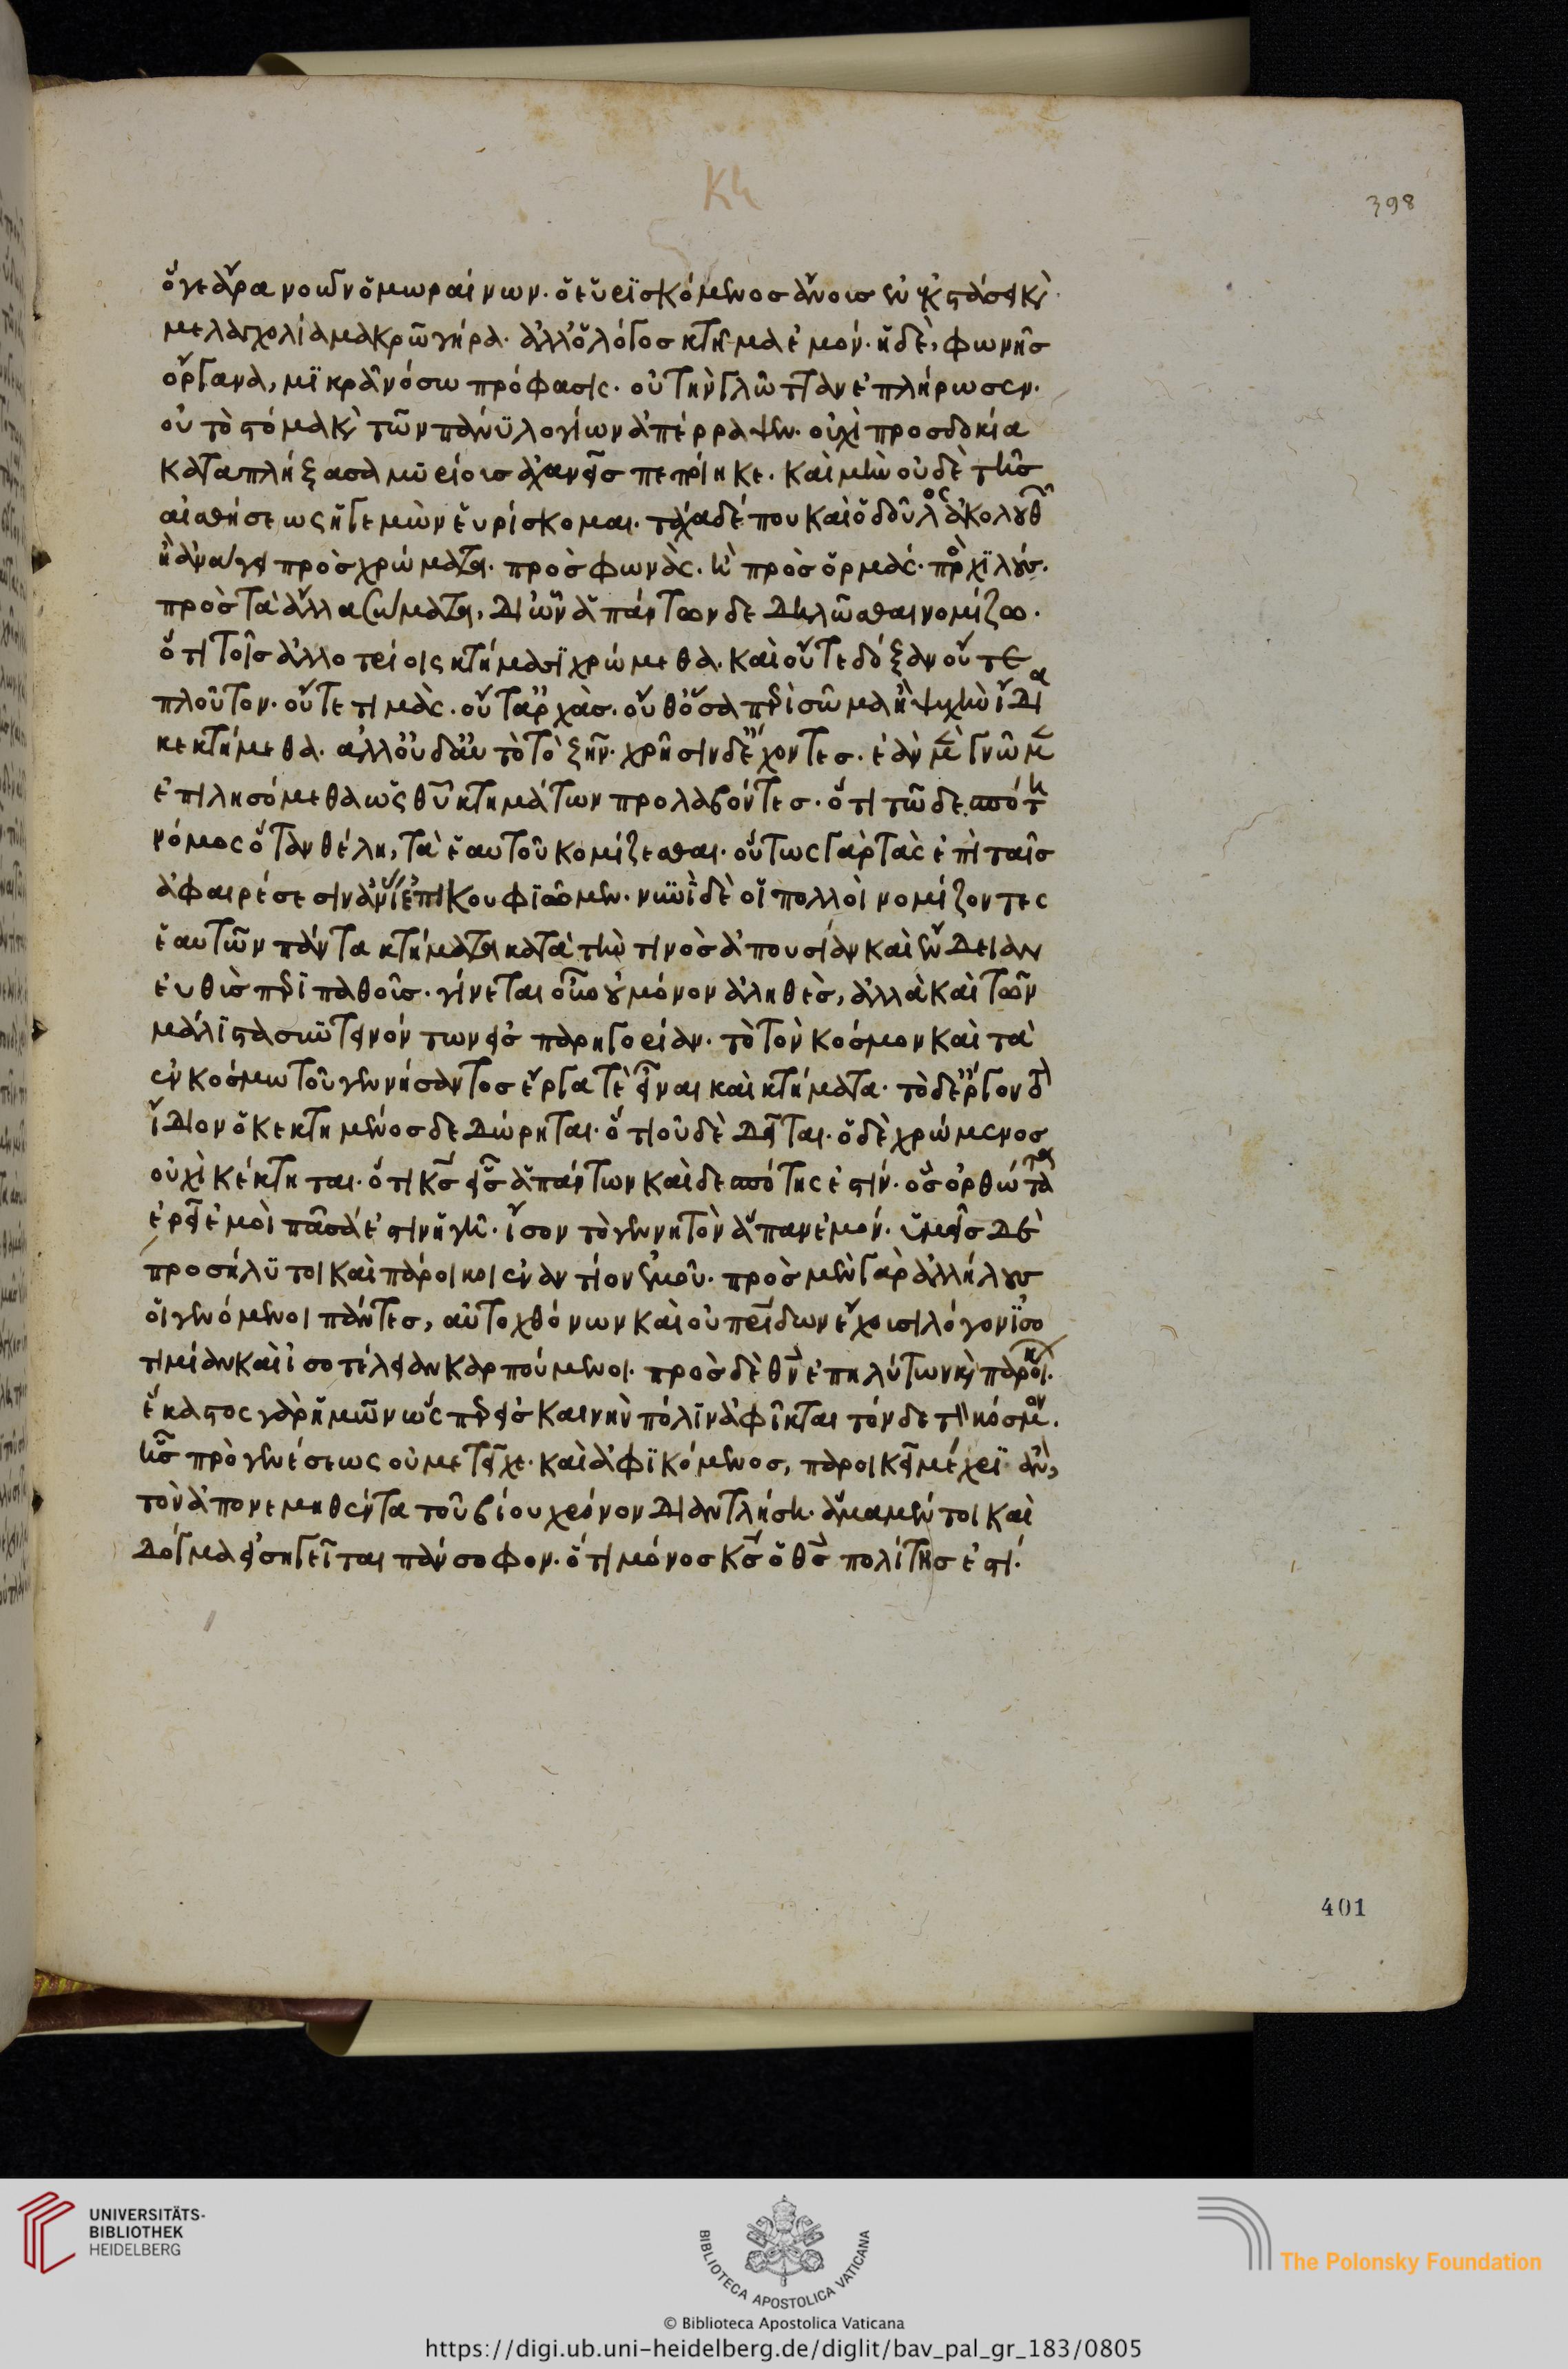 Κη
398
ὅγε ἄρα νοῶν ὁ μωραίνων. ὁ εὑρϊσκόμενος ἄνοις ἐν ἐκστάσει καὶ
μελαγχολία μακρῶ γήρα. ἀλλ' ὁ λόγος κτῆμα ἐμόν. ἡ δὲ, φωνῆς
ὄργανα, μϊκρὰ νόσω πρόφασις. οὐ τὴν γλῶτταν ἐπλήρωσεν.
οὐ τὸ στόμα καὶ τῶν πάνϋ λογίων ἀπέρραψεν. οὐχὶ προσδοκία
καταπλήξασα μυρίοις ἀχανεῖς πεποίηκε. καὶ μὴν οὐδὲ τῆς
αἰσθήσεως ἡγεμὼν εὑρίσκομαι. τάχα δέ που καὶ ὁ δοῦλος ἀκολουθῶν
ἢ ἀνάγει πρὸς χρώματα. πρὸς φωνὰς. ἢ πρὸς ὁρμὰς. πρὸς χϊλούς.
πρὸς τὰ ἄλλα σώματα, δι ὧν ἁπάντων δεδηλῶσθαι νομίζω.
ὅτι τοῖς ἀλλοτρίοις κτήμασϊ χρώμεθα. καὶ οὔτε δόξαν οὔτε
πλοῦτον. οὔτε τιμὰς. οὔτ' ἀρχὰς. οὔθ' ὅσα περὶ σῶμα ἢ ψυχὴν ἴδια
κεκτήμεθα. ἀλλ' οὐδ' αὐτὸ τὸ ζῆν. χρῆσιν δ' ἔχοντες. ἐὰν μὲν γνῶμεν
ἐπιλησόμεθα ὡς θεοῦ κτημάτων προλαβόντες. ὅτι τῶ δεσπότη
νόμος ὅταν θέλη, τὰ ἑαυτοῦ κομίζεσθαι. οὕτως γὰρ τὰς ἐπὶ ταῖς
ἀφαιρέσεσιν ἀνίας ἐπικουφϊοῦμεν. νυνὶ δὲ οἱ πολλοὶ νομίζοντες
ἑαυτῶν πάντα κτήματα κατὰ τὴν τινὸς ἀπουσίαν καὶ ἔνδειαν
εὐθὺς περϊπαθοῖς. γίνεται οὖν οὐ μόνον ἀληθὲς, ἀλλὰ καὶ τῶν
μάλιστα συντεινόντων εἰς παρηγορίαν. τὸ τὸν κόσμον καὶ τὰ
ἐν κόσμω τοῦ γεννήσαντος ἔργα τὲ εἶναι καὶ κτήματα. τὸ δ' ἔργον τὸ
ἴδιον ὁ κεκτημένος δεδώρηται. ὅτι οὐδὲ δεῖται. ὁ δὲ χρώμενος
οὐχὶ κέκτηται. ὅτι κς εἷς ἁπάντων καὶ δεσπότης ἐστίν. ὃς ὀρθώτατα
ἐρεῖ ἐμοὶ πᾶσά ἐστιν ἡ γῆ. ἴσον τὸ γεννητὸν ἅπαν ἐμόν. ὑμεῖς δὲ
προσήλϋτοι καὶ πάροικοι ἐναντίον ἐμοῦ. πρὸς μὲν γὰρ ἀλλήλους
οἱ γενόμενοι πάντες, αὐτοχθόνων καὶ οὐ πατρίδων ἔχουσι λόγον ἴσο
τιμίαν καὶ ἰσοτέλειαν καρπούμενοι. πρὸς δὲ θν ἐπηλύτων καὶ παροίκων.
ἕκαστος γὰρ ἡμῶν ὡς περ εἰς καινὴν πόλϊν ἀφῖκται τόνδε τὸν κόσμον.
ἧς πρὸ γενέσεως οὐ μετεῖχε. καὶ ἀφϊκόμενος, παροικεῖ μέχρϊ ἂν,
τὸν ἀπονεμηθέντα τοῦ βίου χρόνον διαντλήση. ἅμα μέντοι καὶ
δόγμα εἰσηγεῖται πάνσοφον. ὅτι μόνος κς ὁ θς πολίτης ἐστί.
401
UNIVERSITÄTS-
BIBLIOTHEK
HEIDELBERG
BIBLIOTECA APOSTOLICA VATICANA
The Polonsky Foundation
© Biblioteca Apostolica Vaticana
https://digi.ub.uni-heidelberg.de/diglit/bav_pal_gr_183/0805